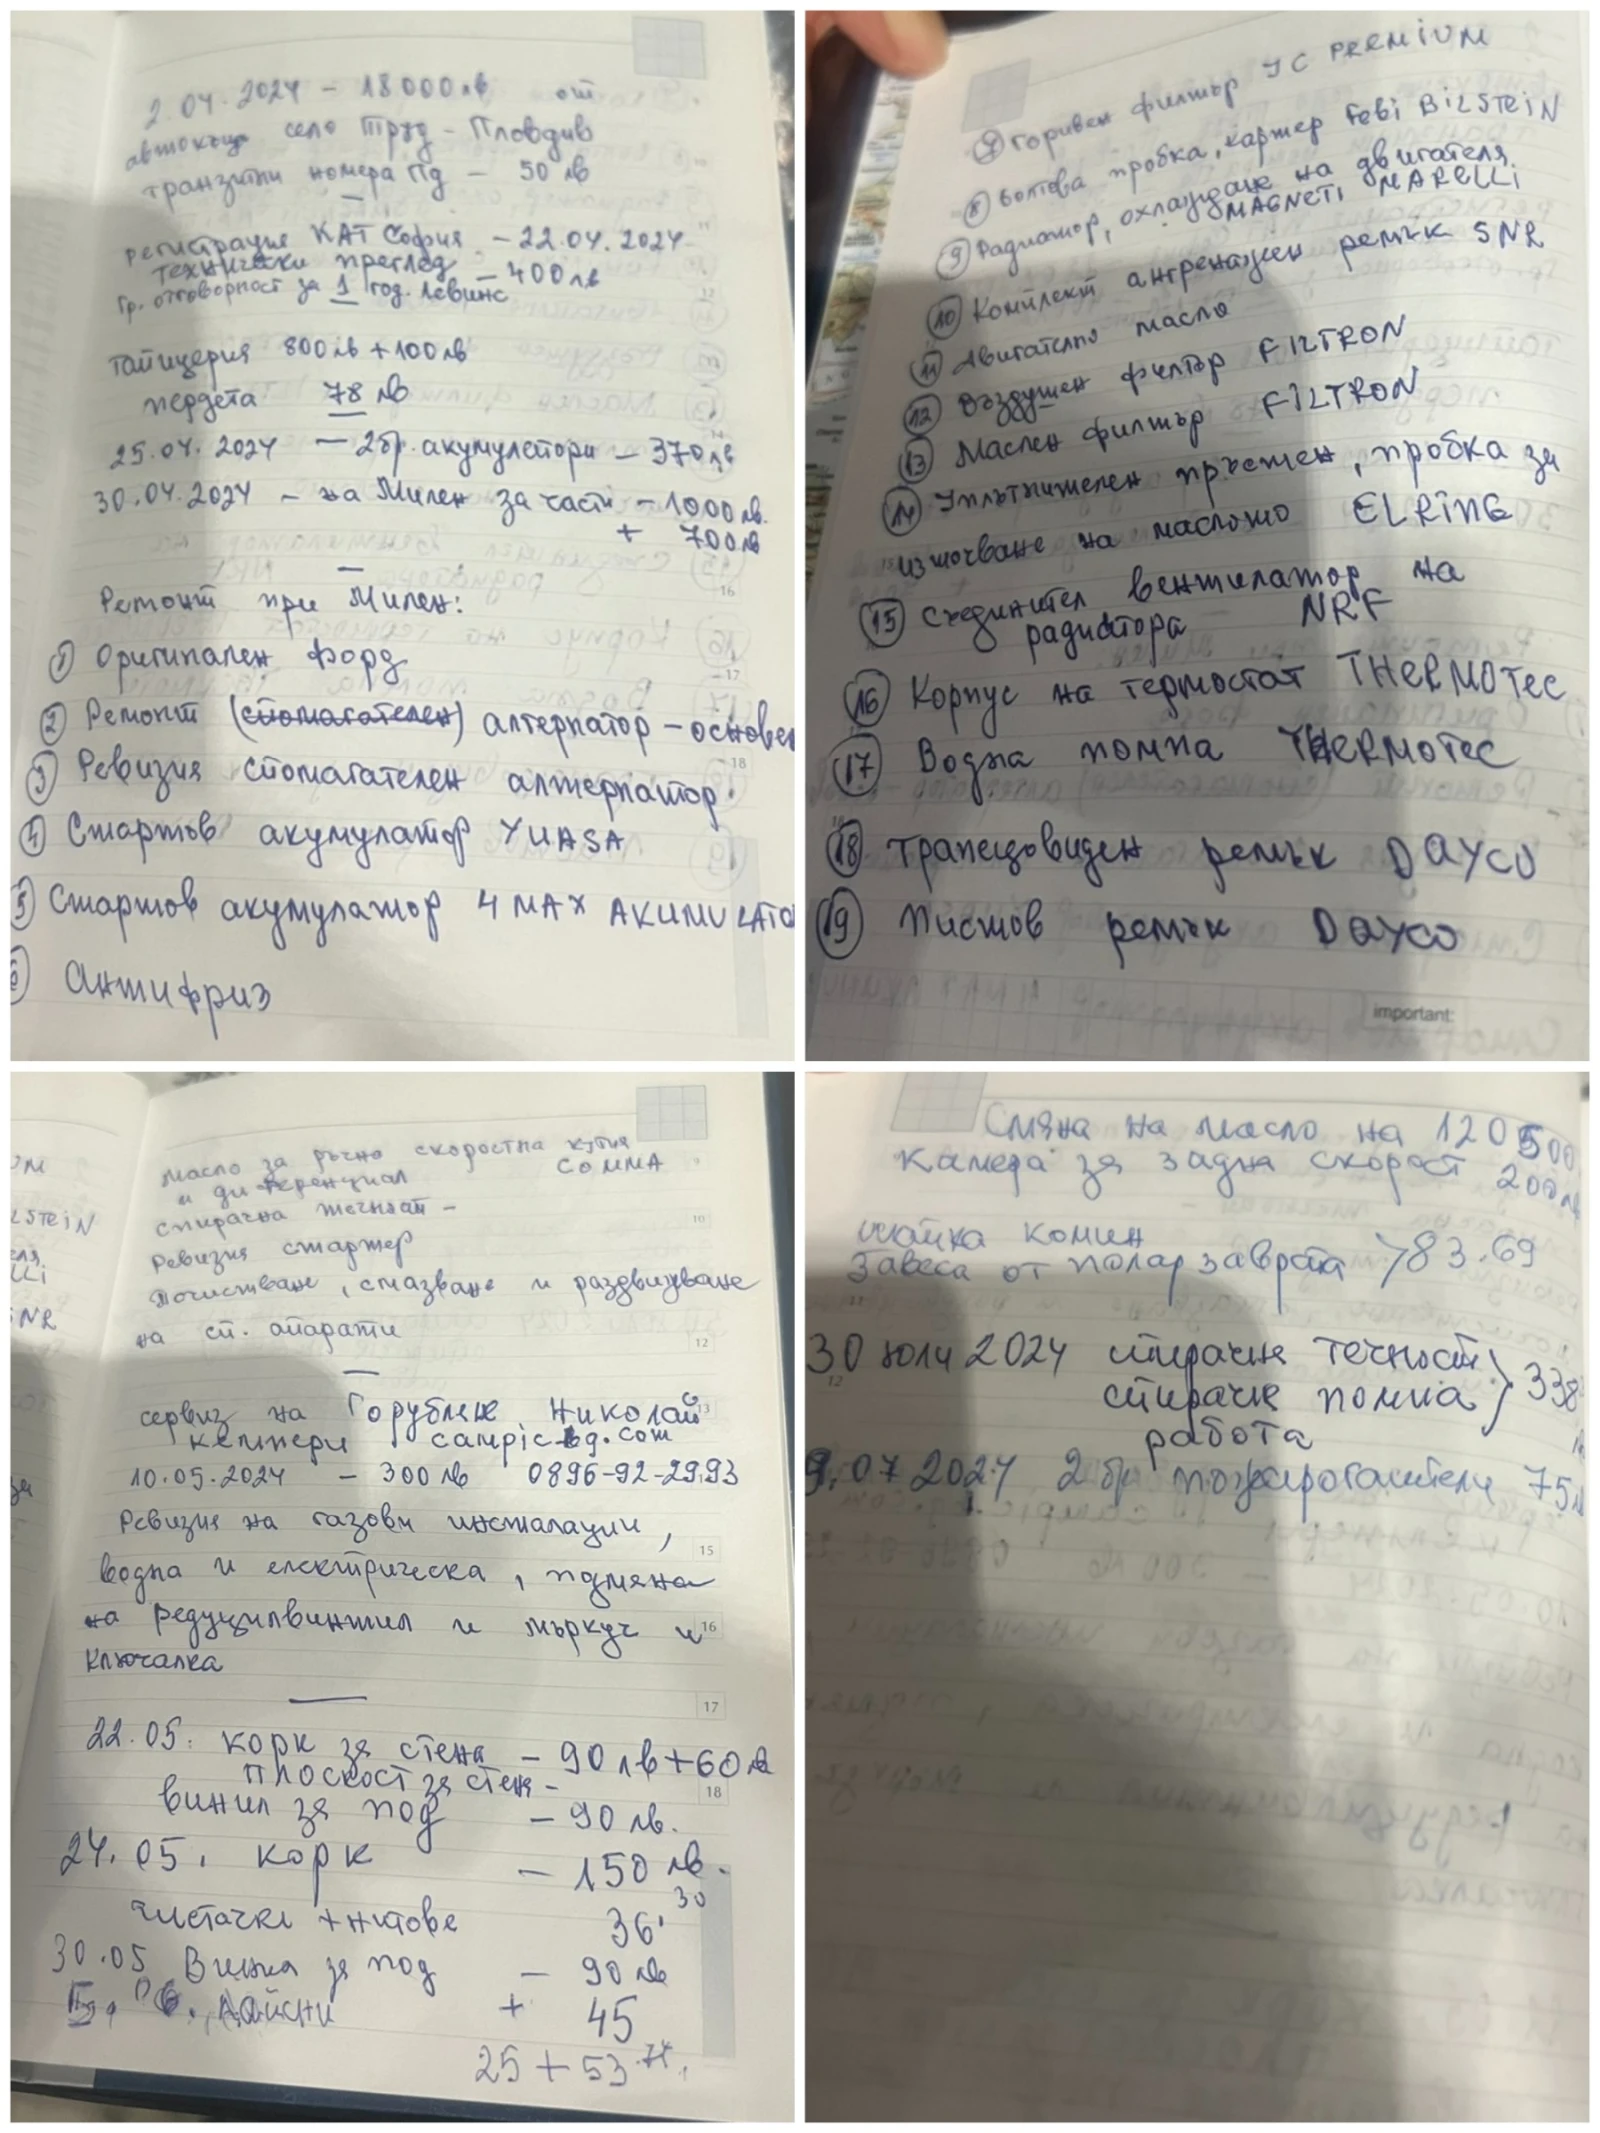 2.04.2024 - 18000лв от
автокъща село Труд - Пловдив
транзитни номера Пд - 50 лв
регистрация КАТ София - 22.04.2024
технически преглед - 400лв
Гр. отговорност за 1 год. Левинс
тапицерия 800лв + 100лв
пердета 78 лв
25.04.2024 - 2бр. акумулатори - 370лв
30.04.2024 - на Милен за части - 1000 лв.
+ 700лв
Ремонт при Милен:
1 Оригинален Форд
2 Ремонт (спомагателен) алтернатор - основен
3 Ревизия спомагателен алтернатор
4 Стартов акумулатор YUASA
5 Стартов акумулатор 4 MAX AKUMULATO
6 Антифриз
7 Горивен филтър JC PREMIUM
8 Болтова пробка, картер Febi BILSTEIN
9 Радиатор, охлаждане на двигателя.
MAGNETI MARELLI
10 Комплект ангренажен ремък SNR
11 Двигателно масло
12 Въздушен филтър FILTRON
13 Маслен филтър FILTRON
14 Уплътнителен пръстен, пробка за
източване на маслото ELRING
15 Съединител вентилатор на
радиатора NRF
16 Корпус на термостат THERMOTEC
17 Водна помпа THERMOTEC
18 Трапецовиден ремък DAYCO
19 Пистов ремък DAYCO
important:
масло за ръчна скоростна кутия
и диференциал СОММА
спирачна течност -
10
Ревизия стартер
Почистване, смазване и раздвижване
на сп. апарати
12
13
сервиз на Горубляне Николай
кемпери campicbg.com
10.05.2024 - 300 лв 0896-92-29,93
Ревизия на газови инсталации,
15
водна и електрическа, подмяна
на редуцилвинтил и маркуч и
16
ключалка
17
22.05. корк за стена - 90 лв + 60 лв
плоскост за стена -
18
винил за под - 90 лв.
24.05. корк - 150 лв.
чистачки + нитове 36.30
30.05 Винил за под - 90 лв
06. лайсни + 45
25 + 53.74.
Смяна на масло на 120500
камера за задна скорост 200лв
шапка комин
завеса от полар за врата > 83.69
30 юли 2024 спирачна течност
спирачна помпа } 338
работа
9.07 2024 2 бр пожарогасители 75лв